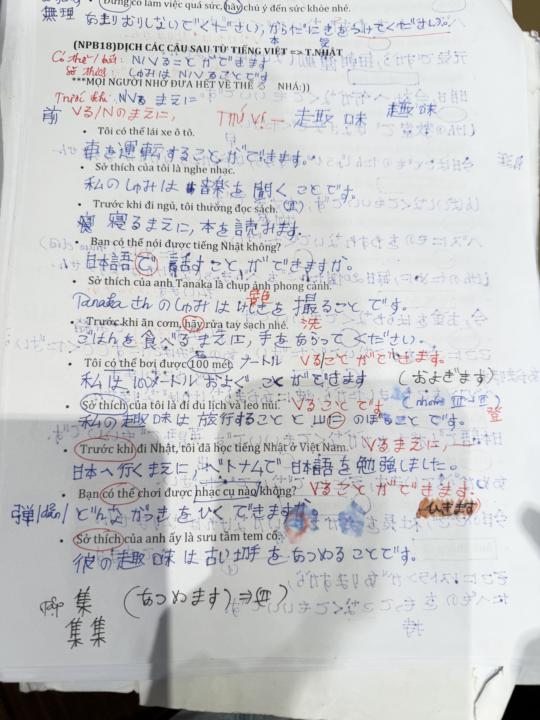 Đừng cố làm việc quá sức, hãy chú ý đến sức khỏe nhé.
無理 あまりむりしないでください, からだにきをつけてください。
(NPB18)DỊCH CÁC CÂU SAU TỪ TIẾNG VIỆT => T.NHẬT
Có thể / biết: N/Vることができます
Sở thích: しゅみは N/Vることです
***MỌI NGƯỜI NHỚ ĐƯA HẾT VỀ THỂ る NHÁ:))
Trước khi N/Vるまえに
前 Vる/Nのまえに, Thú vị – 走取味 趣味
• Tôi có thể lái xe ô tô.
車を運転することができます。
• Sở thích của tôi là nghe nhạc.
私のしゅみは音楽を聞くことです。
• Trước khi đi ngủ, tôi thường đọc sách.
寝るまえに, 本を読みます.
• Bạn có thể nói được tiếng Nhật không?
日本語で話すことができますか。
• Sở thích của anh Tanaka là chụp ảnh phong cảnh.
TanakaさんのしゅみはけしきをI撮ることです。
• Trước khi ăn cơm, hãy rửa tay sạch nhé. 洗
ごはんを食べるまえに, 手をあらってください。
• Tôi có thể bơi được 100 mét メートル Vることができます.
私は100メートルおよぐことができます (およぎます)
• Sở thích của tôi là đi du lịch và leo núi. Vることです (nhóm III→II) 登
私の趣味は旅行することと山にのぼることです。
• Trước khi đi Nhật, tôi đã học tiếng Nhật ở Việt Nam. Vるまえに,
日本へ行くまえに, ベトナムで日本語を勉強しました。
• Bạn có thể chơi được nhạc cụ nào không? Vることができます.
弾/đàn/ どんながっきをひくできますか。 ひきます
• Sở thích của anh ấy là sưu tầm tem cổ.
彼の趣味は古い切手をあつめることです。
tập 集 (あつめます)⇒
集集